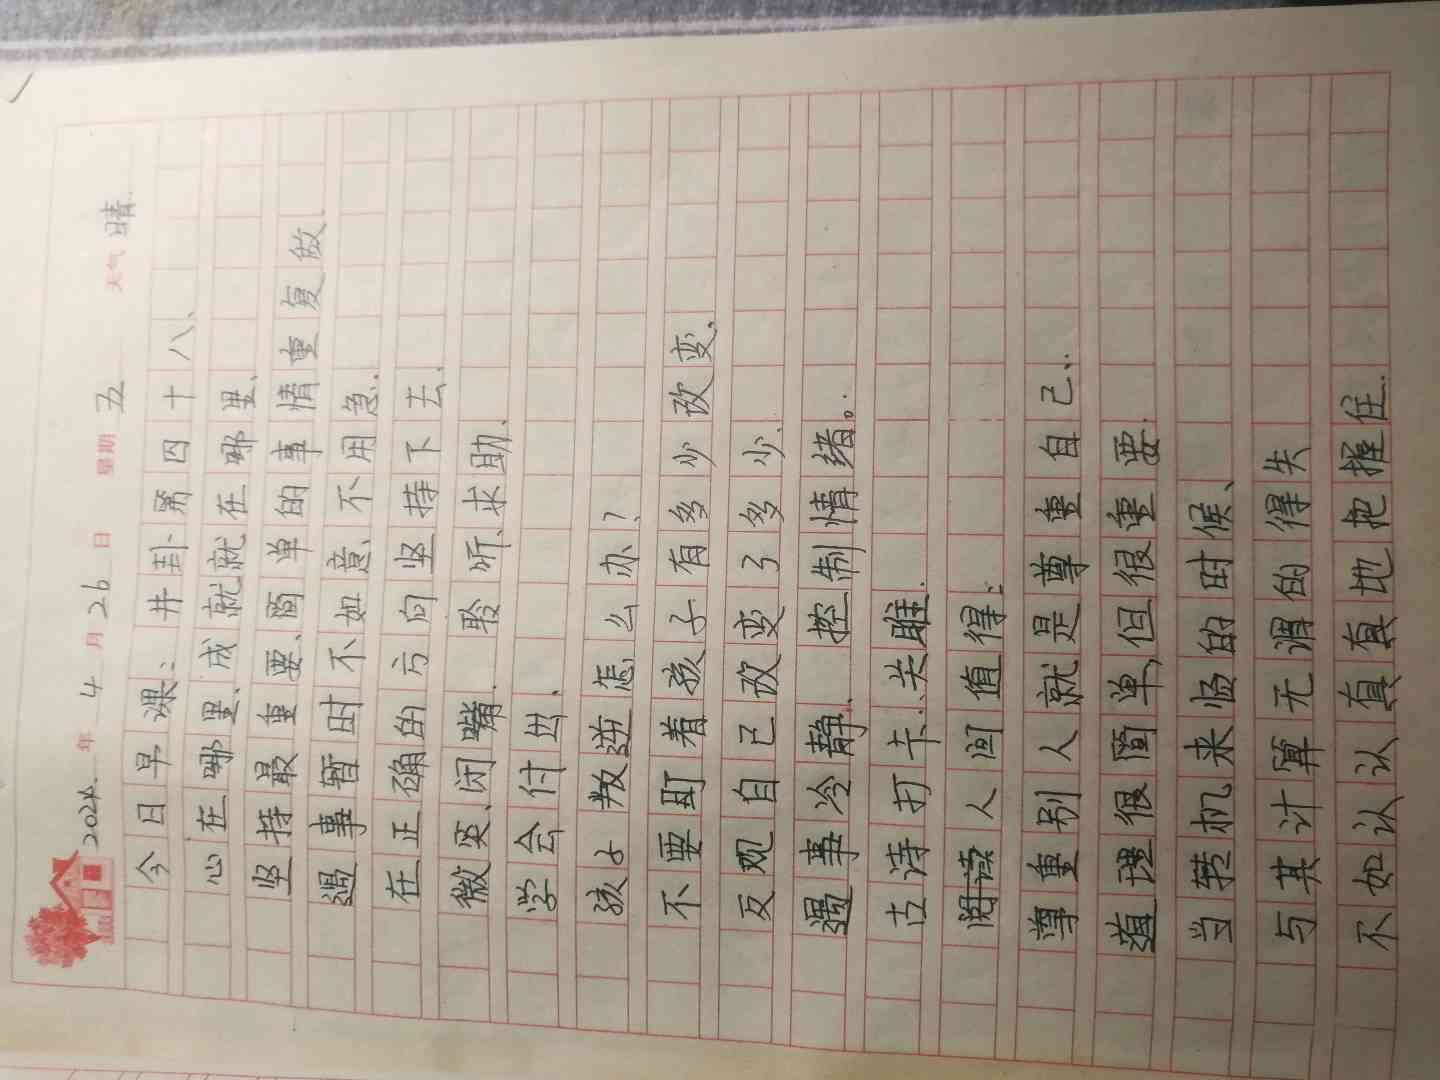 2024年4月26日 星期五 天气晴
今日早课：井卦第四十八、
心在哪里、成就就在哪里、
坚持最重要、简单的事情重复做、
遇事暂时不如意、不用急.
在正确的方向坚持下去.
微笑、闭嘴.聆听、求助.
学会付出.
孩子叛逆怎么办？
不要盯着孩子有多少改变.
反观自己改变了多少.
遇事冷静.控制情绪。
古诗打卡：关雎.
阅读人间值得：
尊重别人就是尊重自己.
道理很简单,但很重要.
当转机来临的时候、
与其计算无谓的得失
不如认认真真地把握住.